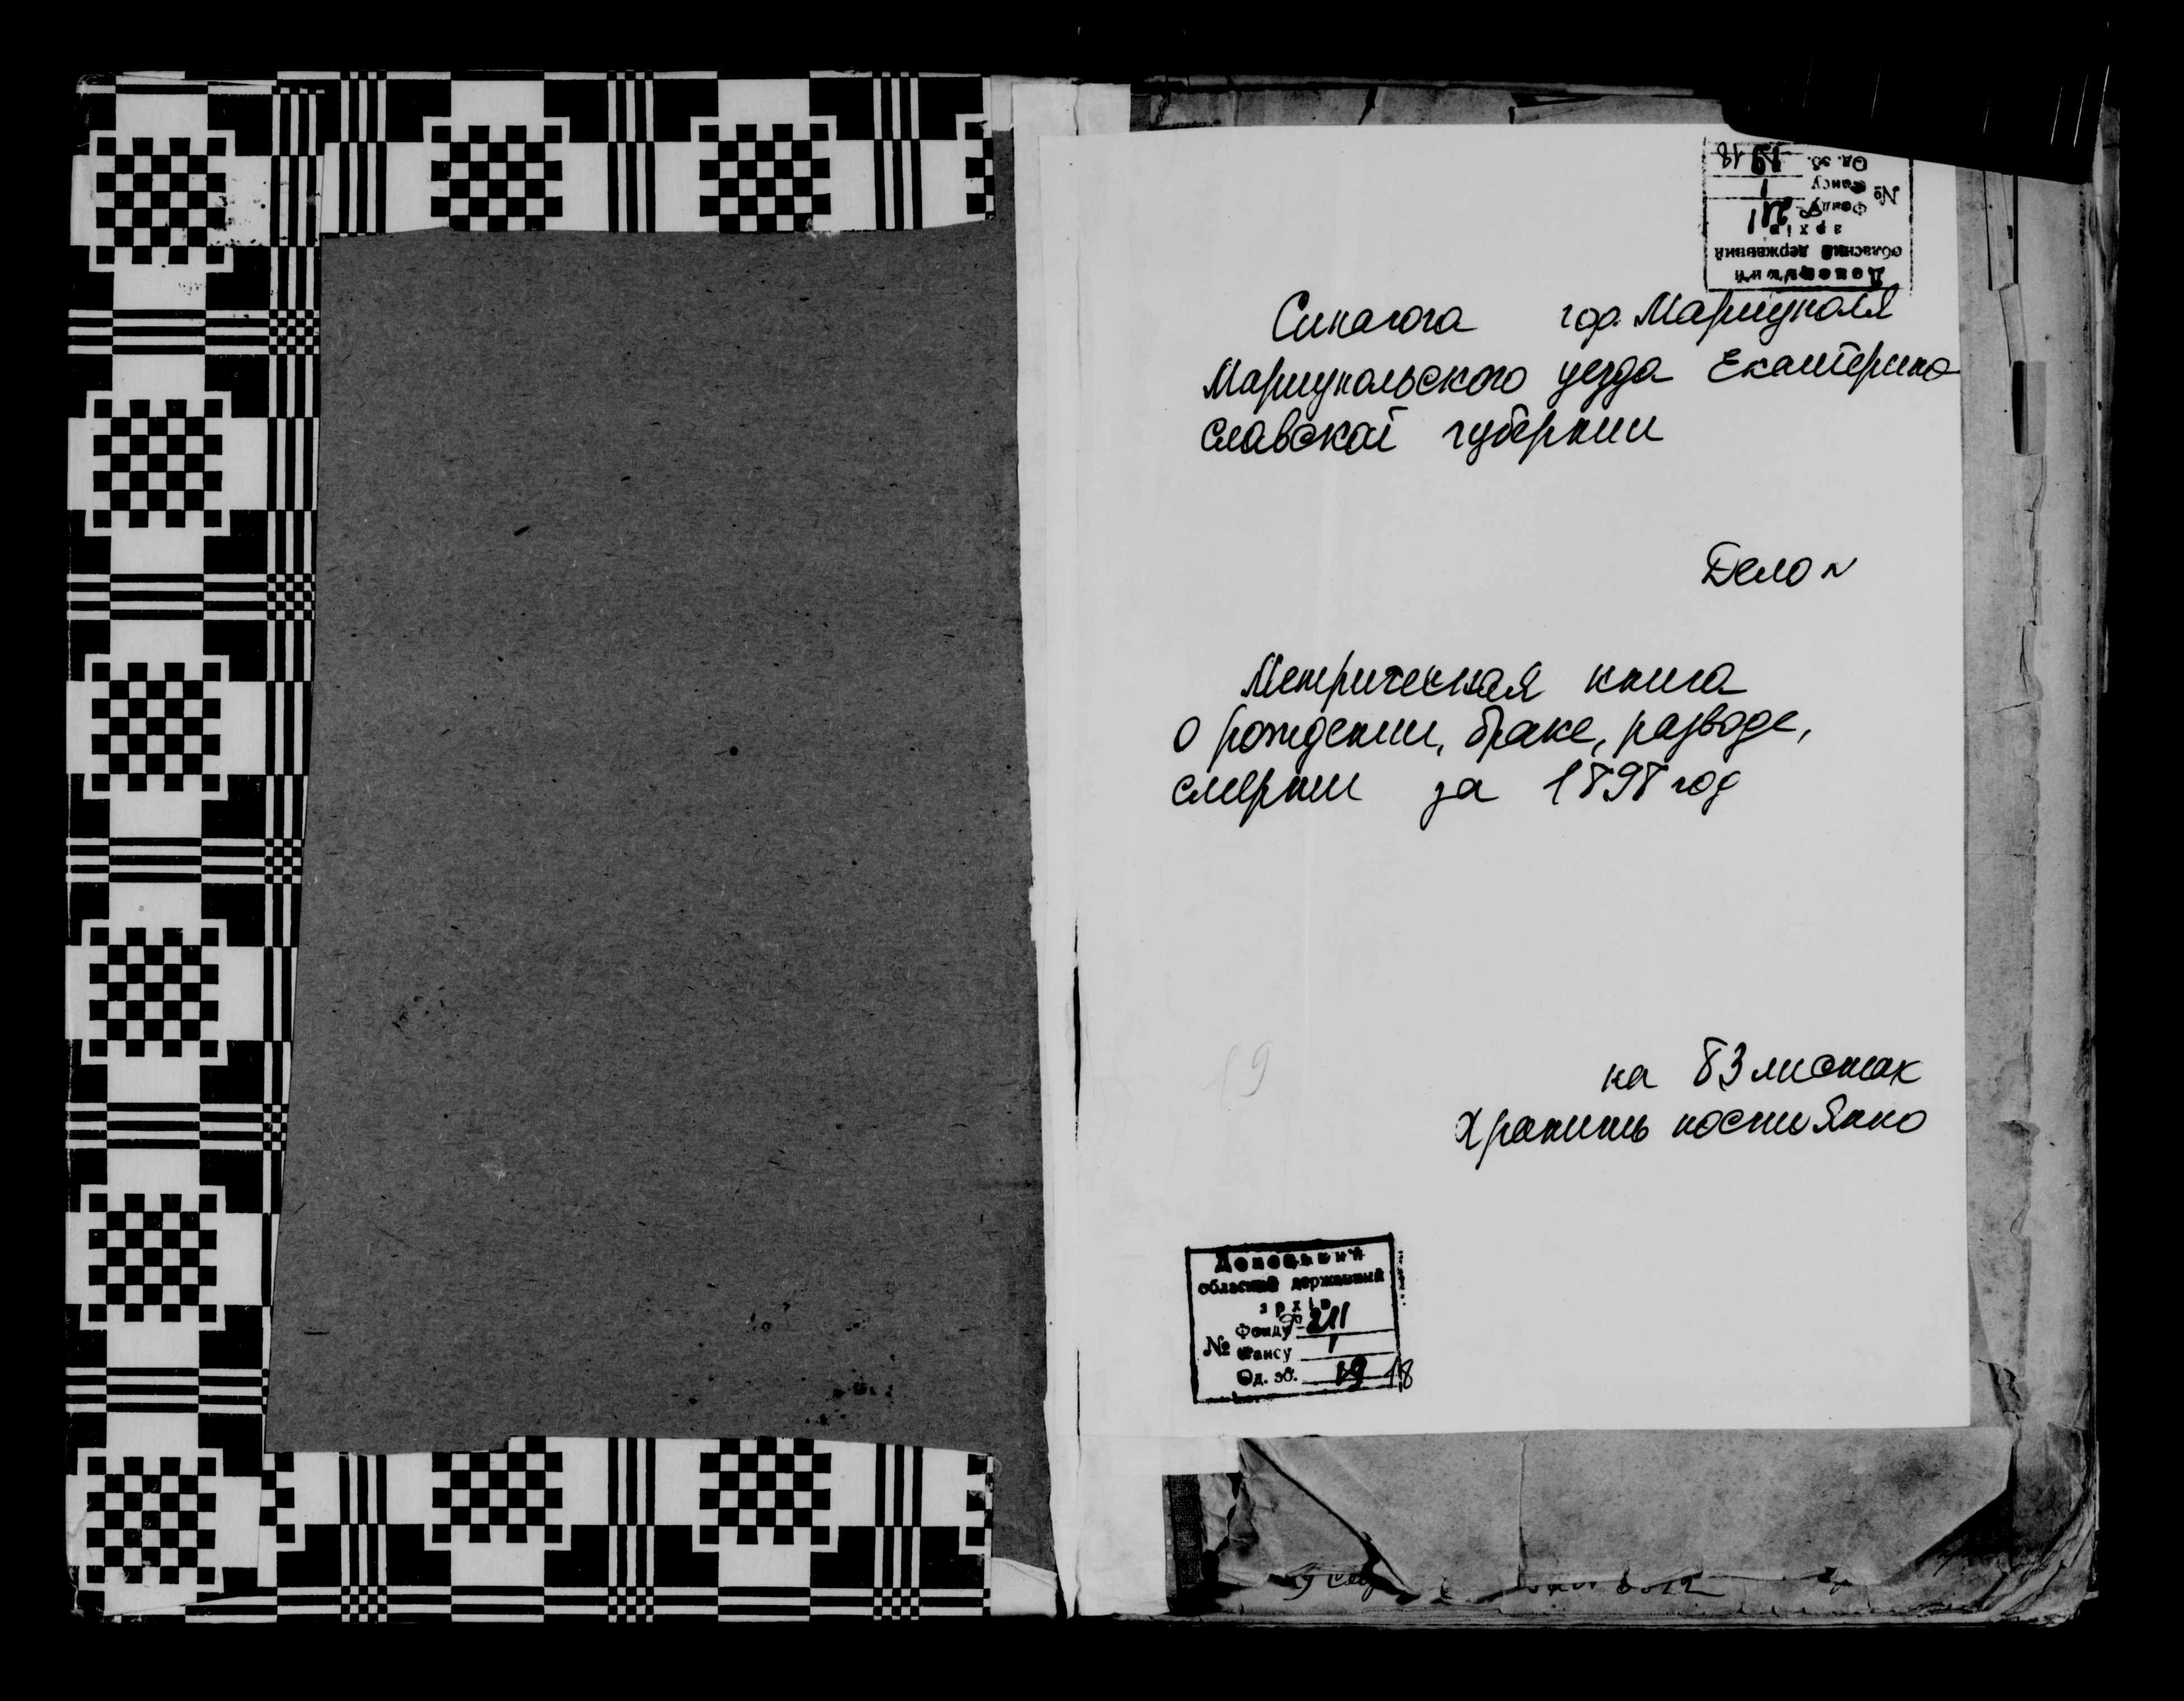 Донецький
обласний державний
архів
Фонду Р-211
№ Опису 1
Од. зб. 19 18
Синагога гор. Мариуполя
Мариупольского уезда Екатерино
славской губернии
Дело N
Метрическая книга
о рождении, браке, разводе,
смерти за 1898 год
19
на 83 листах
Хранить постоянно
Донецький
обласний державний
архів
Фонду Р-211
№ Опису 1
Од. зб. 19 18